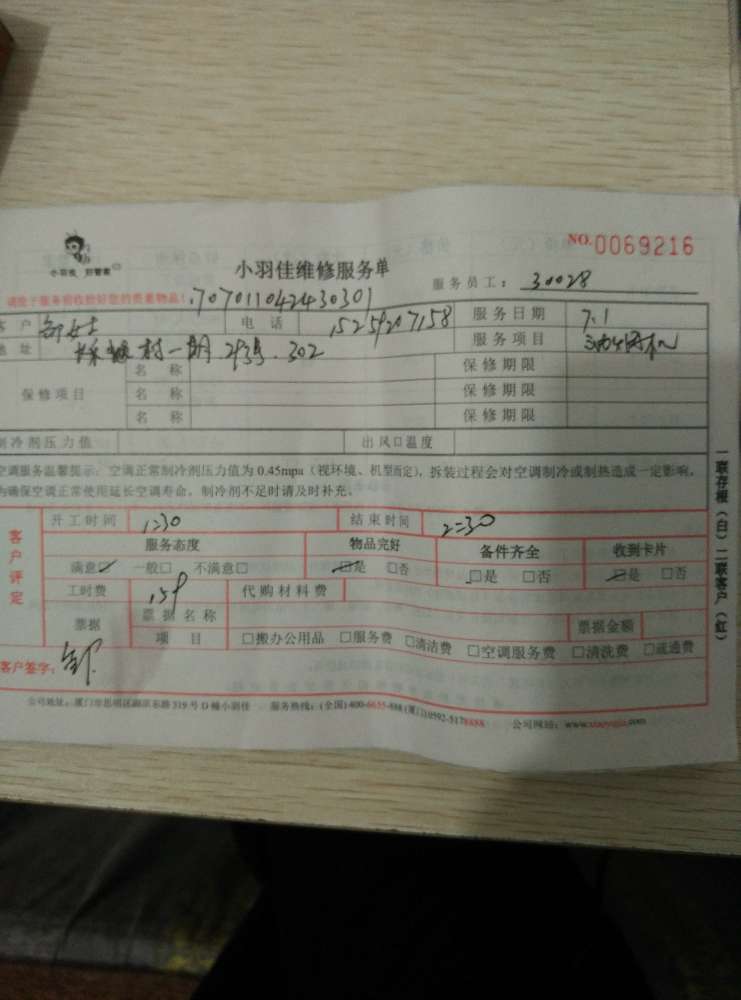 NO. 0069216
小羽佳 好管家
小羽佳维修服务单
服务员工: 30028
请您于服务前收拾好您的贵重物品! 707011042430301
客户 女士 电话 15259207158 服务日期 7.1
地址 村一期 302 服务项目
保修项目 名称 保修期限
名称 保修期限
名称 保修期限
制冷剂压力值 出风口温度
空调服务温馨提示: 空调正常制冷剂压力值为 0.45mpa (视环境、机型而定), 拆装过程会对空调制冷或制热造成一定影响,
为确保空调正常使用延长空调寿命, 制冷剂不足时请及时补充。
客户评定
开工时间 1:30 结束时间 2:30
服务态度 物品完好 备件齐全 收到卡片
满意☑ 一般□ 不满意□ ☑是 □否 □是 □否 ☑是 □否
工时费 159 代购材料费
票据 票据名称 票据金额
项目 □搬办公用品 □服务费 □清洁费 □空调服务费 □清洗费 □疏通费
客户签字:
公司地址: 厦门市思明区湖滨东路 319 号 D 幢小羽佳 服务热线: (全国)400-6655-888 (厦门)0592-5178888 公司网站: www.xiaoyujia.com
一联存根(白) 二联客户(红)